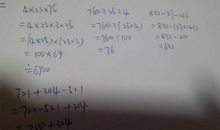 4×23×75
=4×23×3×25
=(4×25)×(23×3)
=100×69
=6900
760÷25÷4
=760÷(25×4)
=760÷100
=76
832-57-143
=832-(57+143)
=832-200
=632
721+304-521
=721-521+304
=200+304